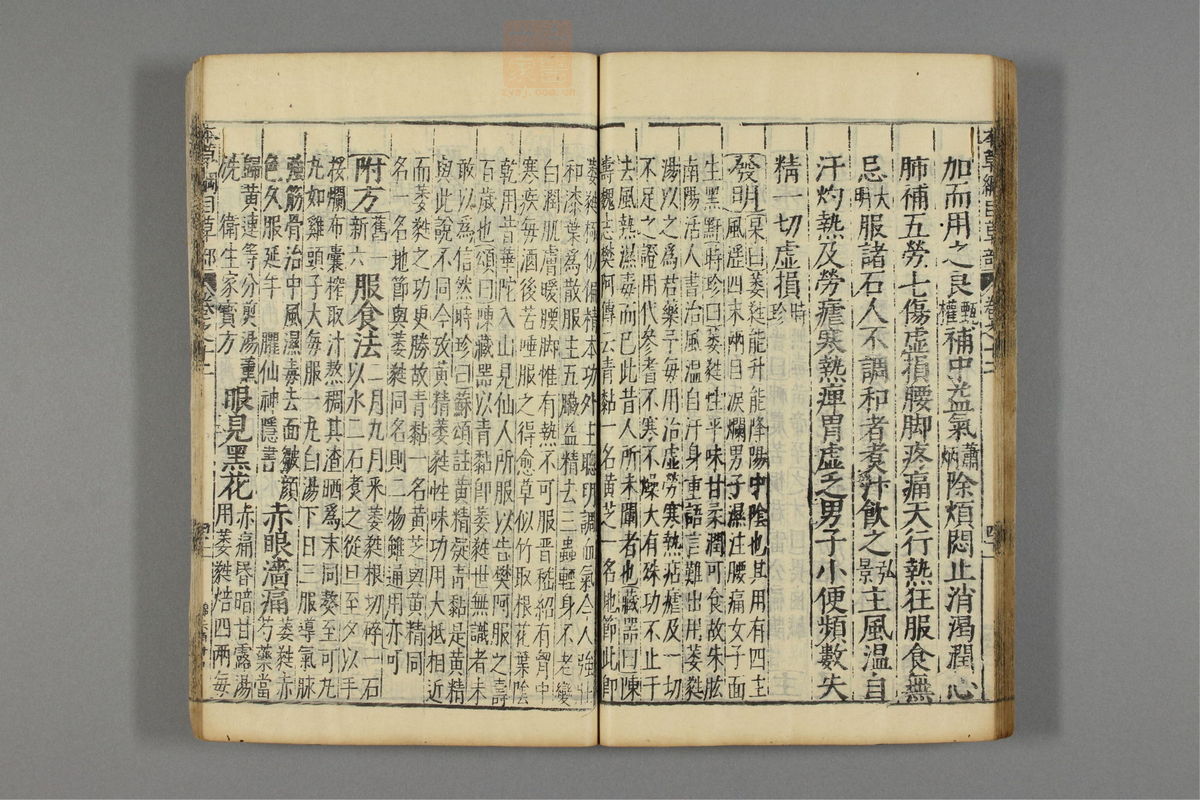 加而用之良甄權補中益氣蕭炳除煩悶止消渴潤心
肺補五勞七傷虛損腰脚疼痛天行熱狂服食無
忌大明服諸石人不調和者煮汁飲之弘景主風溫自
汗灼熱及勞瘧寒熱痺胃虛乏男子小便頻數失
精一切虛損時珍
發明杲曰萎蕤能升能降陽中陰也其用有四主
風淫四末兩目淚爛男子濕注腰痛女子面
生黑䵟時珍曰萎蕤性平味甘柔潤可食故朱肱
南陽活人書治風溫自汗身重語言難出用萎蕤
湯以之為君藥予每用治虛勞寒熱痁瘧及一切
不足之證用代參耆不寒不燥大有殊功不止于
去風熱濕毒而已此昔人所未闡者也藏器曰陳
壽魏志樊阿傳云青黏一名黃芝一名地節此即
萎蕤極似偏精本功外主聰明調血氣令人強壯
和漆葉為散服主五臟益精去三蟲輕身不老變
白潤肌膚暖腰脚惟有熱不可服晋嵇紹有胷中
寒疾每酒後苦唾服之得愈草似竹取根花葉陰
乾用昔華陀入山見仙人所服以告樊阿服之壽
百歲也頌曰陳藏器以青黏即萎蕤世無識者未
敢以為信然時珍曰蘇頌註黃精疑青黏是黃精
與此說不同今攷黃精萎蕤性味功用大抵相近
而萎蕤之功更勝故青黏一名黃芝與黃精同
名一名地節與萎蕤同名則二物雖通用亦可
附方舊一新六服食法二月九月采萎蕤根切碎一石
以水二石煮之從旦至夕以手
挼爛布囊榨取汁熬稠其渣晒為末同熬至可丸
丸如雞頭子大每服一丸白湯下日三服導氣脉
強筋骨治中風濕毒去面皺顏
色久服延年臞仙神隱書赤眼澀痛萎蕤赤芍藥當
歸黃連等分煎湯熏
洗衛生家寶方眼見黑花赤痛昏暗甘露湯
用萎蕤焙四兩每
本草綱目草部 卷之十二
本草綱目草部 卷之十二